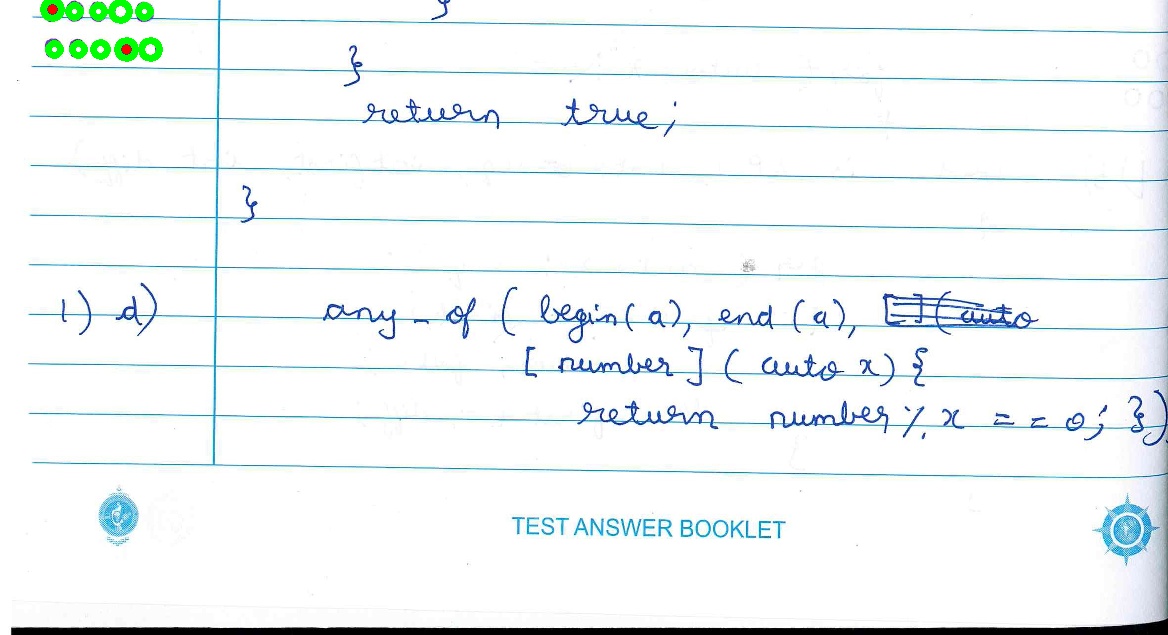 }
}
return true;
}
1) d) any_of ( begin(a), end (a),
[ number ] ( auto x) {
return number % x == 0; })
TEST ANSWER BOOKLET